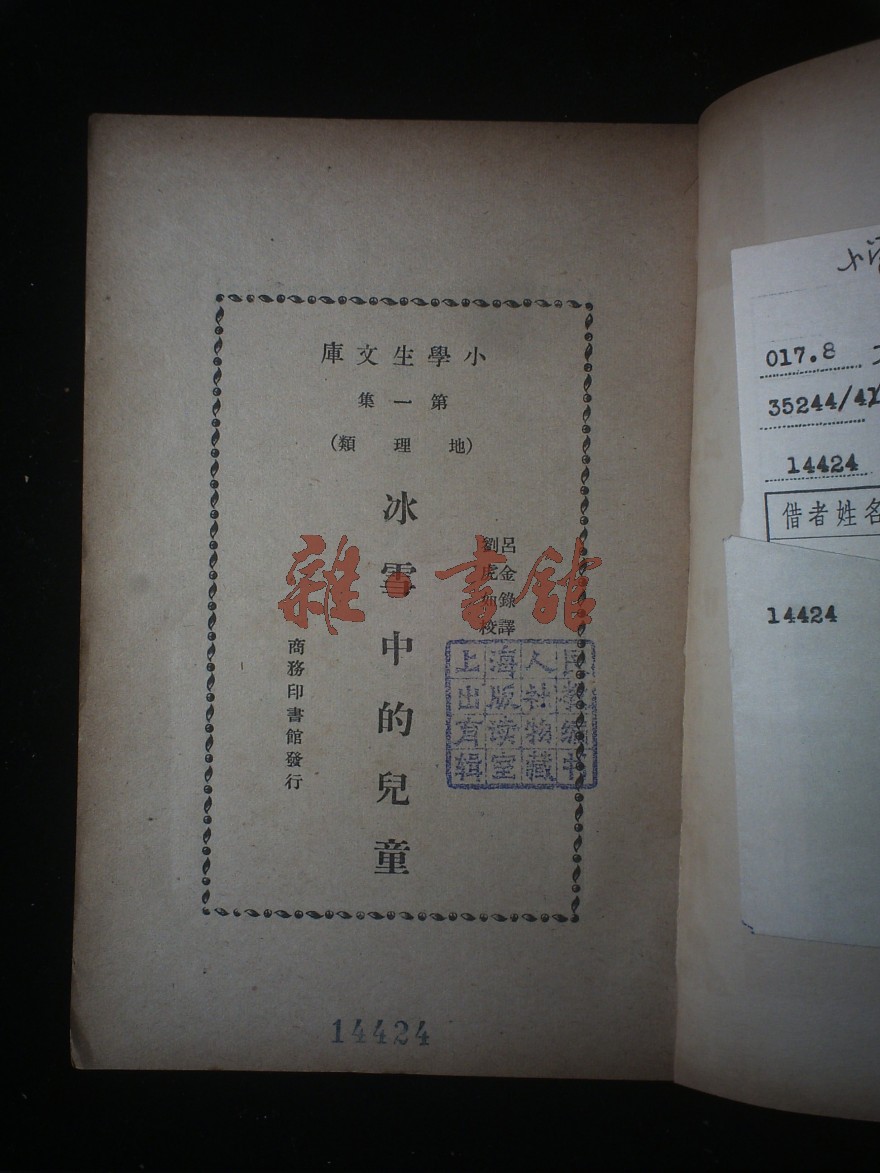 小學生文庫
第一集
(地理類)
呂金錄譯
劉虎如校
冰雪中的兒童
商務印書館發行
雜書館
上海人民
出版社教
育读物编
辑室藏书
14424
017.8
35244/41
14424
借者姓名
14424